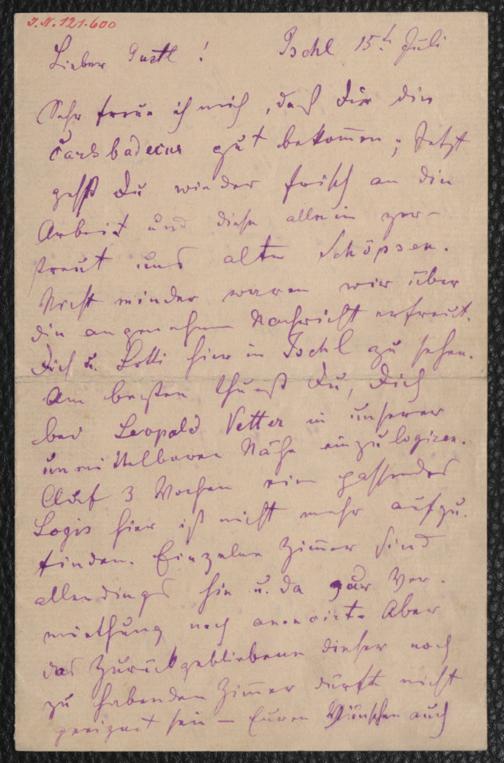 J.N. 121.600
Lieber Gustl! Ischl 15t Juli
Sehr freue ich mich, daß Dir die
Carlsbadecur gut bekommen; Jetzt
gehst Du wieder frisch an die
Arbeit und diese allein zer-
streut uns alte Schöpsen.
Nicht minder waren wir über
die angenehme Nachricht erfreut.
Dich u. Lotti hier in Ischl zu sehen.
Am besten thuest Du, Dich
bei Leopold Vetter in unserer
unmittelbaren Nähe einzulogiren.
Auf 3 Wochen ein passendes
Logis hier ist nicht mehr aufzu-
finden. Einzelne Zimmer sind
allerdings hie u. da zur Ver-
miethung noch Aber
das Zurückgebliebene dieser noch
zu habenden Zimmer dürfte nicht
geeignet sein – Euren Wünschen auch